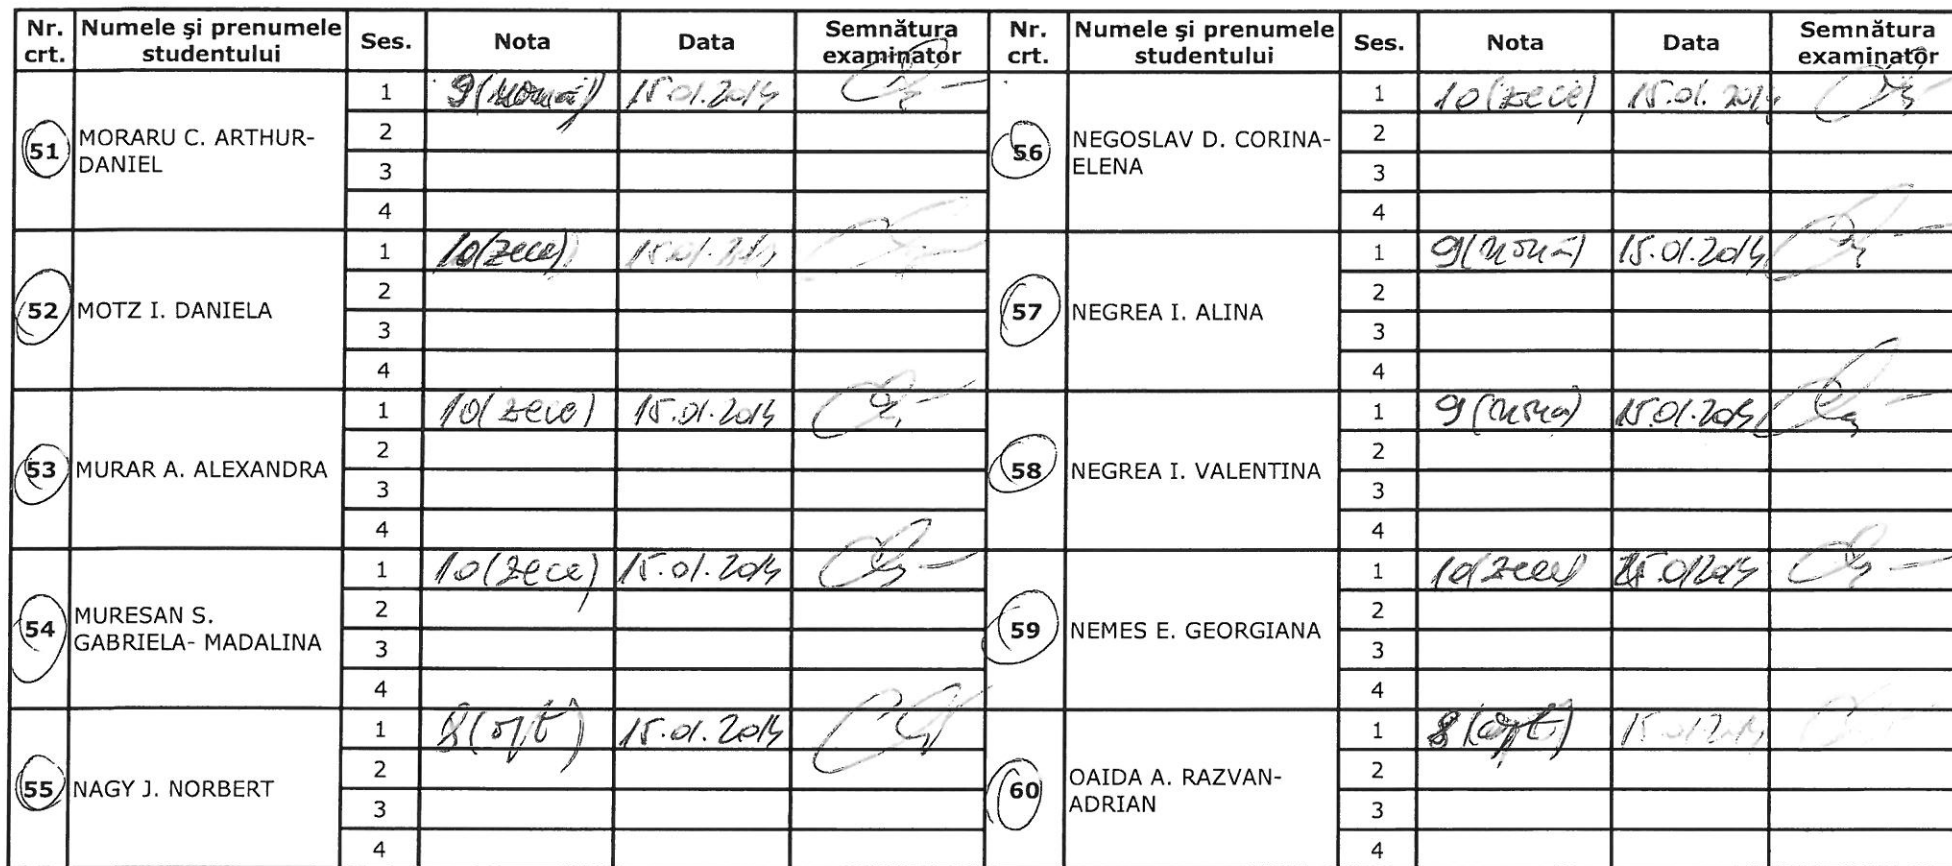 Nr. crt. Numele şi prenumele studentului Ses. Nota Data Semnătura examinator
51 MORARU C. ARTHUR-DANIEL
1 9(nouă) 15.01.2014
2
3
4
52 MOTZ I. DANIELA
1 10(zece) 15.01.2014
2
3
4
53 MURAR A. ALEXANDRA
1 10(zece) 15.01.2014
2
3
4
54 MURESAN S. GABRIELA- MADALINA
1 10(zece) 15.01.2014
2
3
4
55 NAGY J. NORBERT
1 8(opt) 15.01.2014
2
3
4
Nr. crt. Numele şi prenumele studentului Ses. Nota Data Semnătura examinator
56 NEGOSLAV D. CORINA-ELENA
1 10(zece) 15.01.2014
2
3
4
57 NEGREA I. ALINA
1 9(nouă) 15.01.2014
2
3
4
58 NEGREA I. VALENTINA
1 9(nouă) 15.01.2014
2
3
4
59 NEMES E. GEORGIANA
1 10(zece) 15.01.2014
2
3
4
60 OAIDA A. RAZVAN-ADRIAN
1 8(opt) 15.01.2014
2
3
4